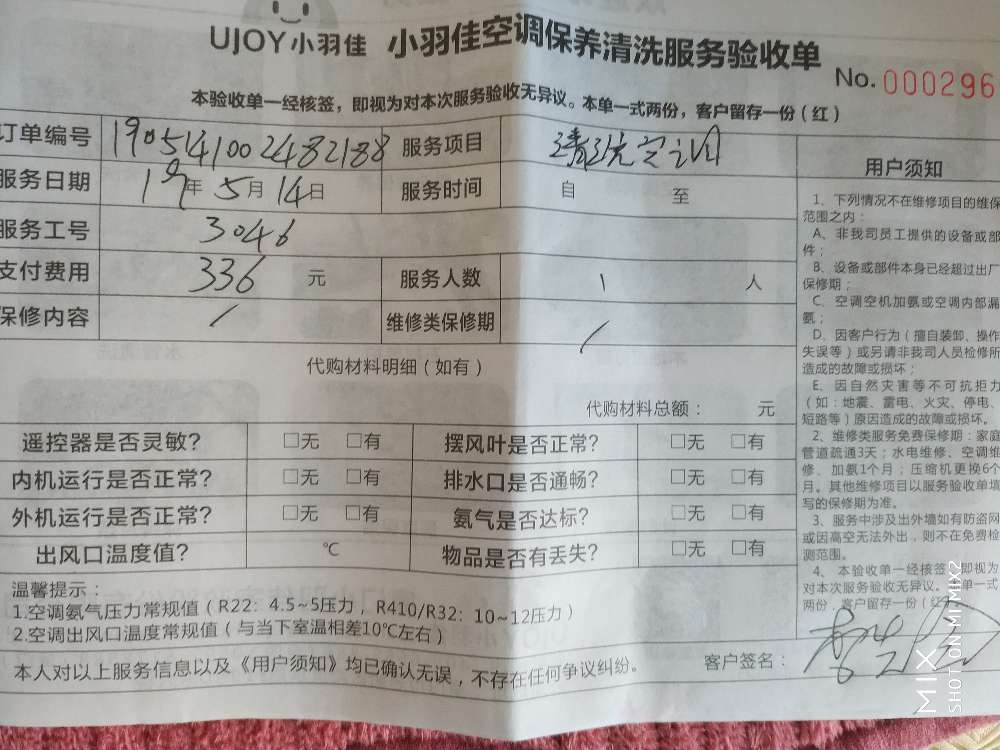 UJOY小羽佳 小羽佳空调保养清洗服务验收单
No. 000296
本验收单一经核签，即视为对本次服务验收无异议。本单一式两份，客户留存一份（红）
订单编号 1905141002482188 服务项目 清洗空调
服务日期 19年5月14日 服务时间 自 至
服务工号 3046
支付费用 336 元 服务人数 1 人
保修内容 / 维修类保修期 /
代购材料明细（如有）
代购材料总额： 元
遥控器是否灵敏？ □无 □有 摆风叶是否正常？ □无 □有
内机运行是否正常？ □无 □有 排水口是否通畅？ □无 □有
外机运行是否正常？ □无 □有 氨气是否达标？ □无 □有
出风口温度值？ ℃ 物品是否有丢失？ □无 □有
温馨提示：
1.空调氨气压力常规值（R22：4.5~5压力，R410/R32：10~12压力）
2.空调出风口温度常规值（与当下室温相差10℃左右）
本人对以上服务信息以及《用户须知》均已确认无误，不存在任何争议纠纷。
客户签名：
用户须知
1、下列情况不在维修项目的维保
范围之内：
A、非我司员工提供的设备或部
件；
B、设备或部件本身已经超过出厂
保修期；
C、空调空机加氨或空调内部漏
氨；
D、因客户行为（擅自装卸、操作
失误等）或另请非我司人员检修所
造成的故障或损坏；
E、因自然灾害等不可抗拒力
（如：地震、雷电、火灾、停电、
短路等）原因造成的故障或损坏。
2、维修类服务免费保修期：家庭
管道疏通3天；水电维修、空调维
修、加氨1个月；压缩机更换6个
月。其他维修项目以服务验收单填
写的保修期为准。
3、服务中涉及出外墙如有防盗网
或因高空无法外出，则不在免费检
测范围。
4、本验收单一经核签，即视为
对本次服务验收无异议。本单一式
两份，客户留存一份（红）
SHOT ON MI MIX2
MIX